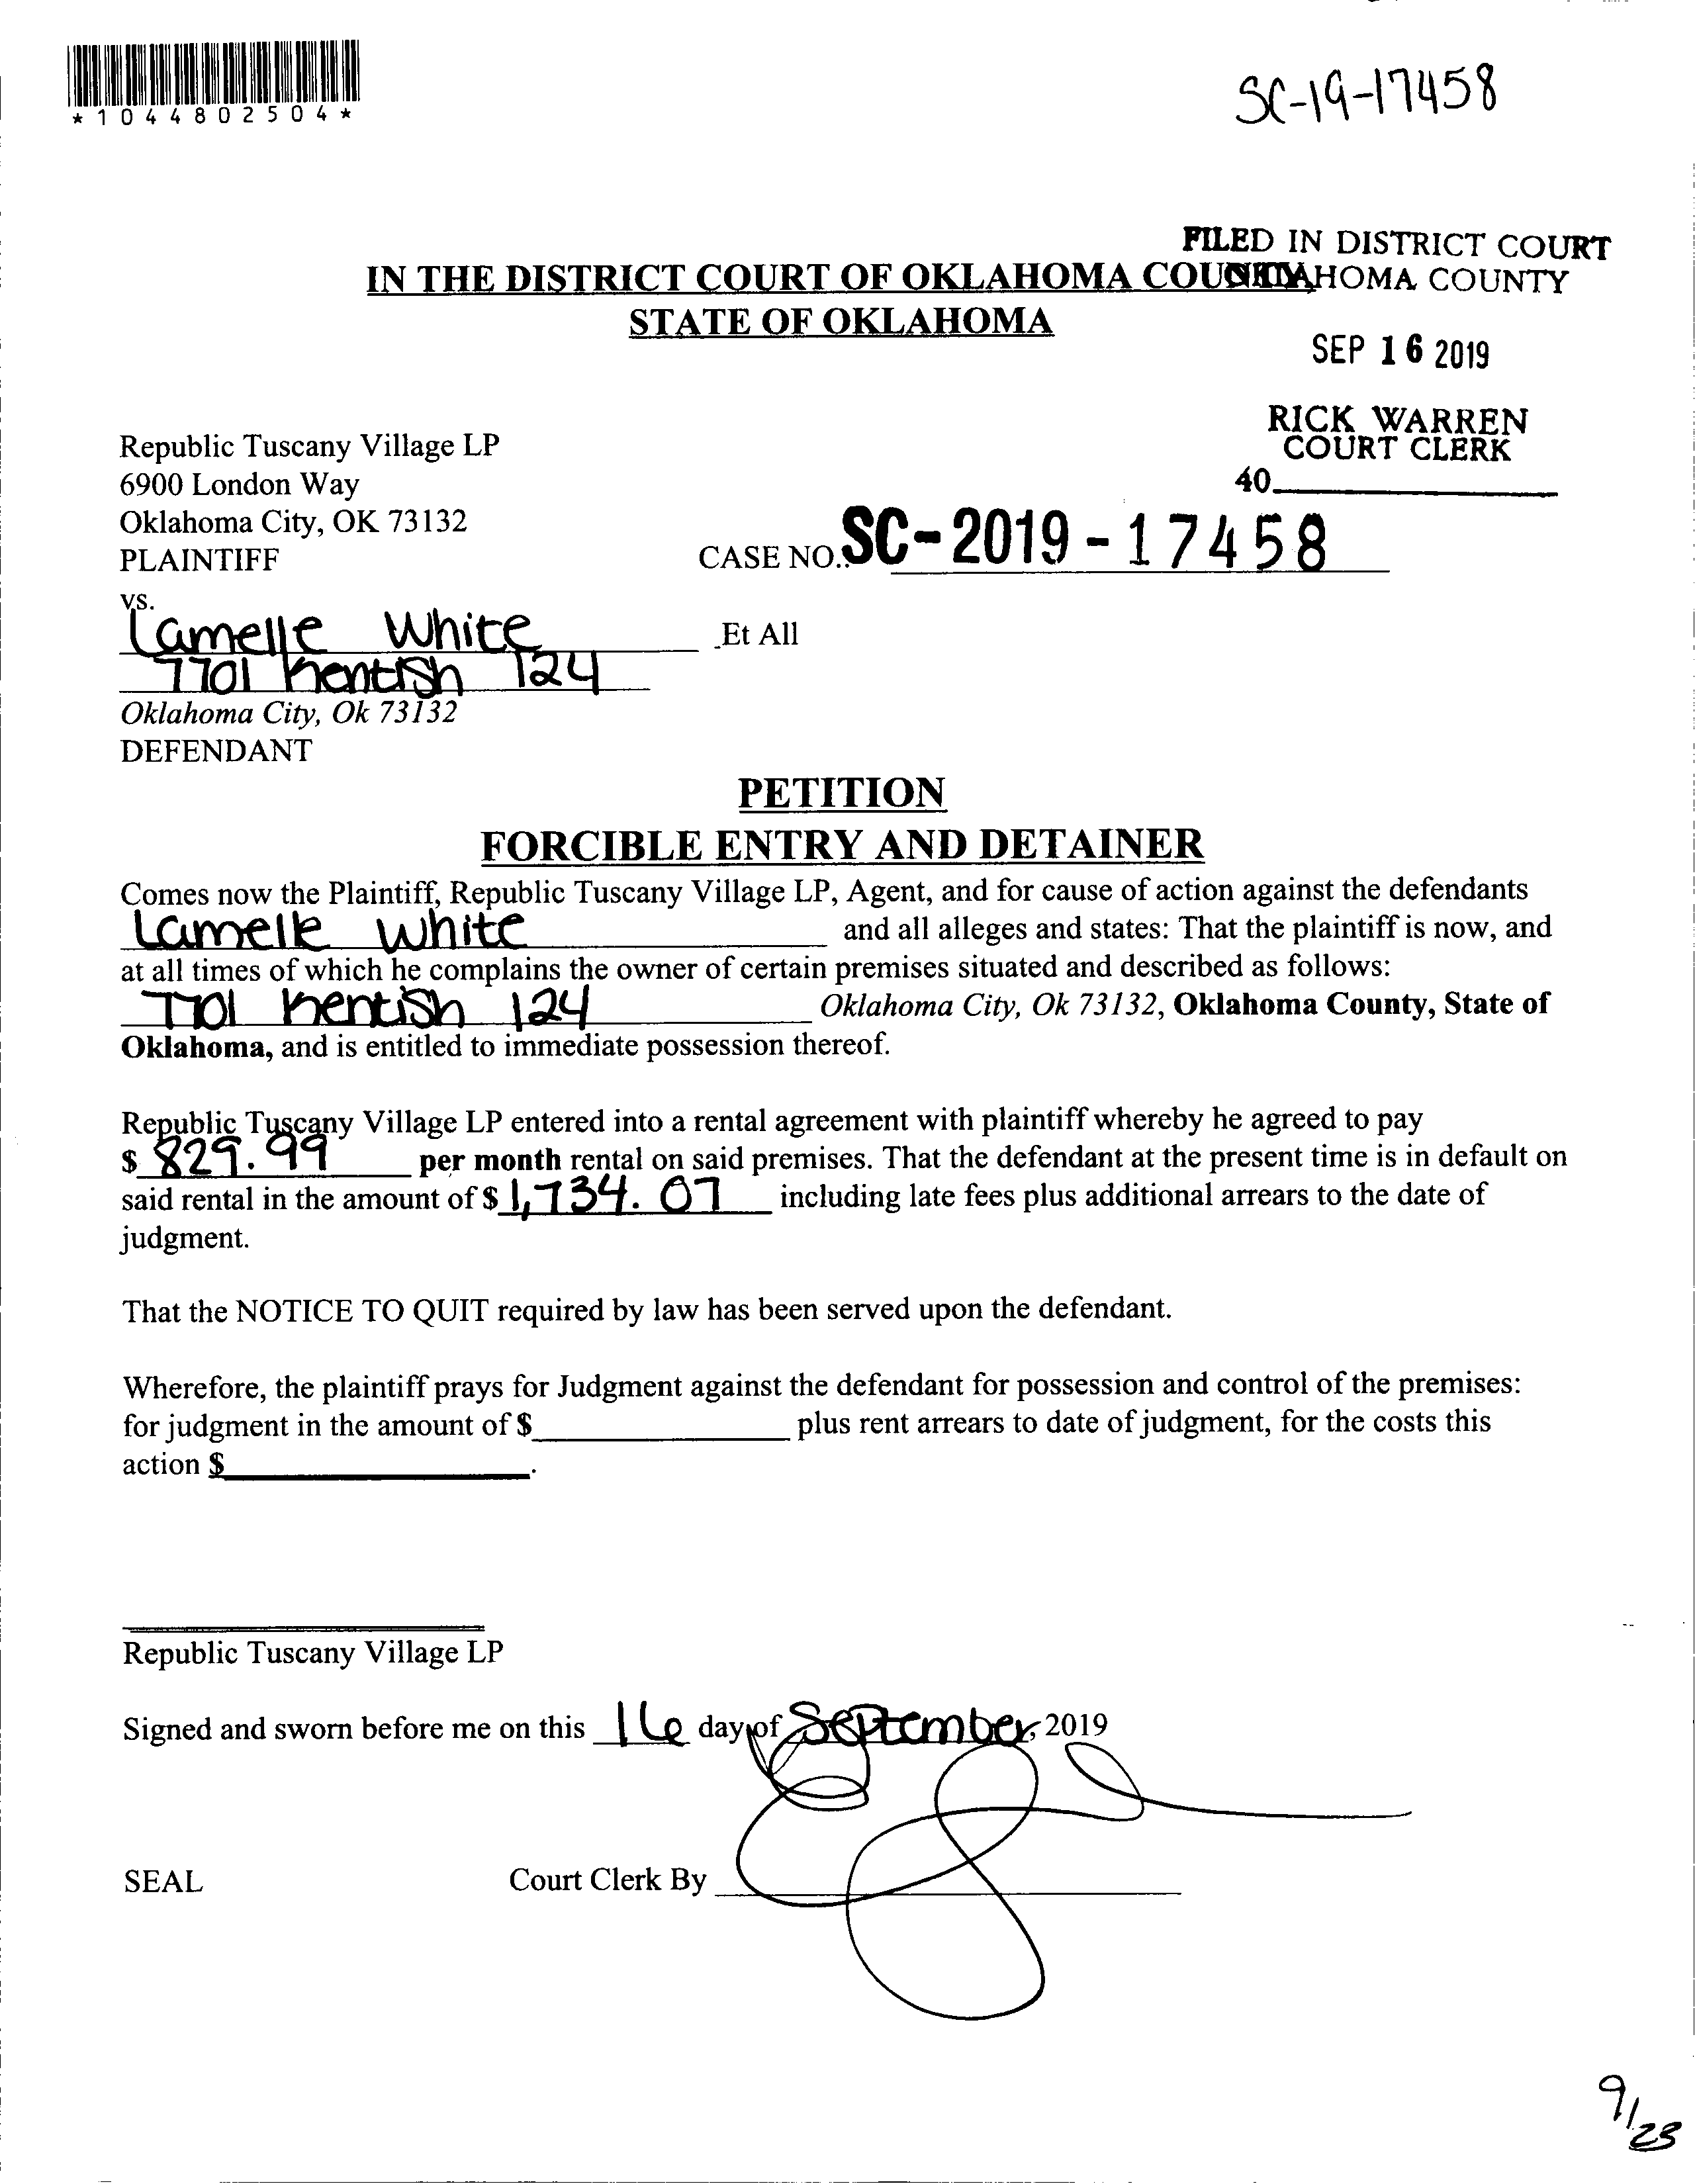 *1044802504*
SC-19-17458
FILED IN DISTRICT COURT
IN THE DISTRICT COURT OF OKLAHOMA COUNTY OKLAHOMA COUNTY
STATE OF OKLAHOMA
SEP 16 2019
RICK WARREN
COURT CLERK
40
Republic Tuscany Village LP
6900 London Way
Oklahoma City, OK 73132
PLAINTIFF
CASE NO.: SC-2019-17458
vs.
Lamelle White Et All
7701 Kentish 124
Oklahoma City, Ok 73132
DEFENDANT
PETITION
FORCIBLE ENTRY AND DETAINER
Comes now the Plaintiff, Republic Tuscany Village LP, Agent, and for cause of action against the defendants
Lamelle White and all alleges and states: That the plaintiff is now, and
at all times of which he complains the owner of certain premises situated and described as follows:
7701 Kentish 124 Oklahoma City, Ok 73132, Oklahoma County, State of
Oklahoma, and is entitled to immediate possession thereof.
Republic Tuscany Village LP entered into a rental agreement with plaintiff whereby he agreed to pay
$ 829.99 per month rental on said premises. That the defendant at the present time is in default on
said rental in the amount of $ 1,734.07 including late fees plus additional arrears to the date of
judgment.
That the NOTICE TO QUIT required by law has been served upon the defendant.
Wherefore, the plaintiff prays for Judgment against the defendant for possession and control of the premises:
for judgment in the amount of $ plus rent arrears to date of judgment, for the costs this
action $ .
Republic Tuscany Village LP
Signed and sworn before me on this 16 day of September, 2019
SEAL Court Clerk By
9/23